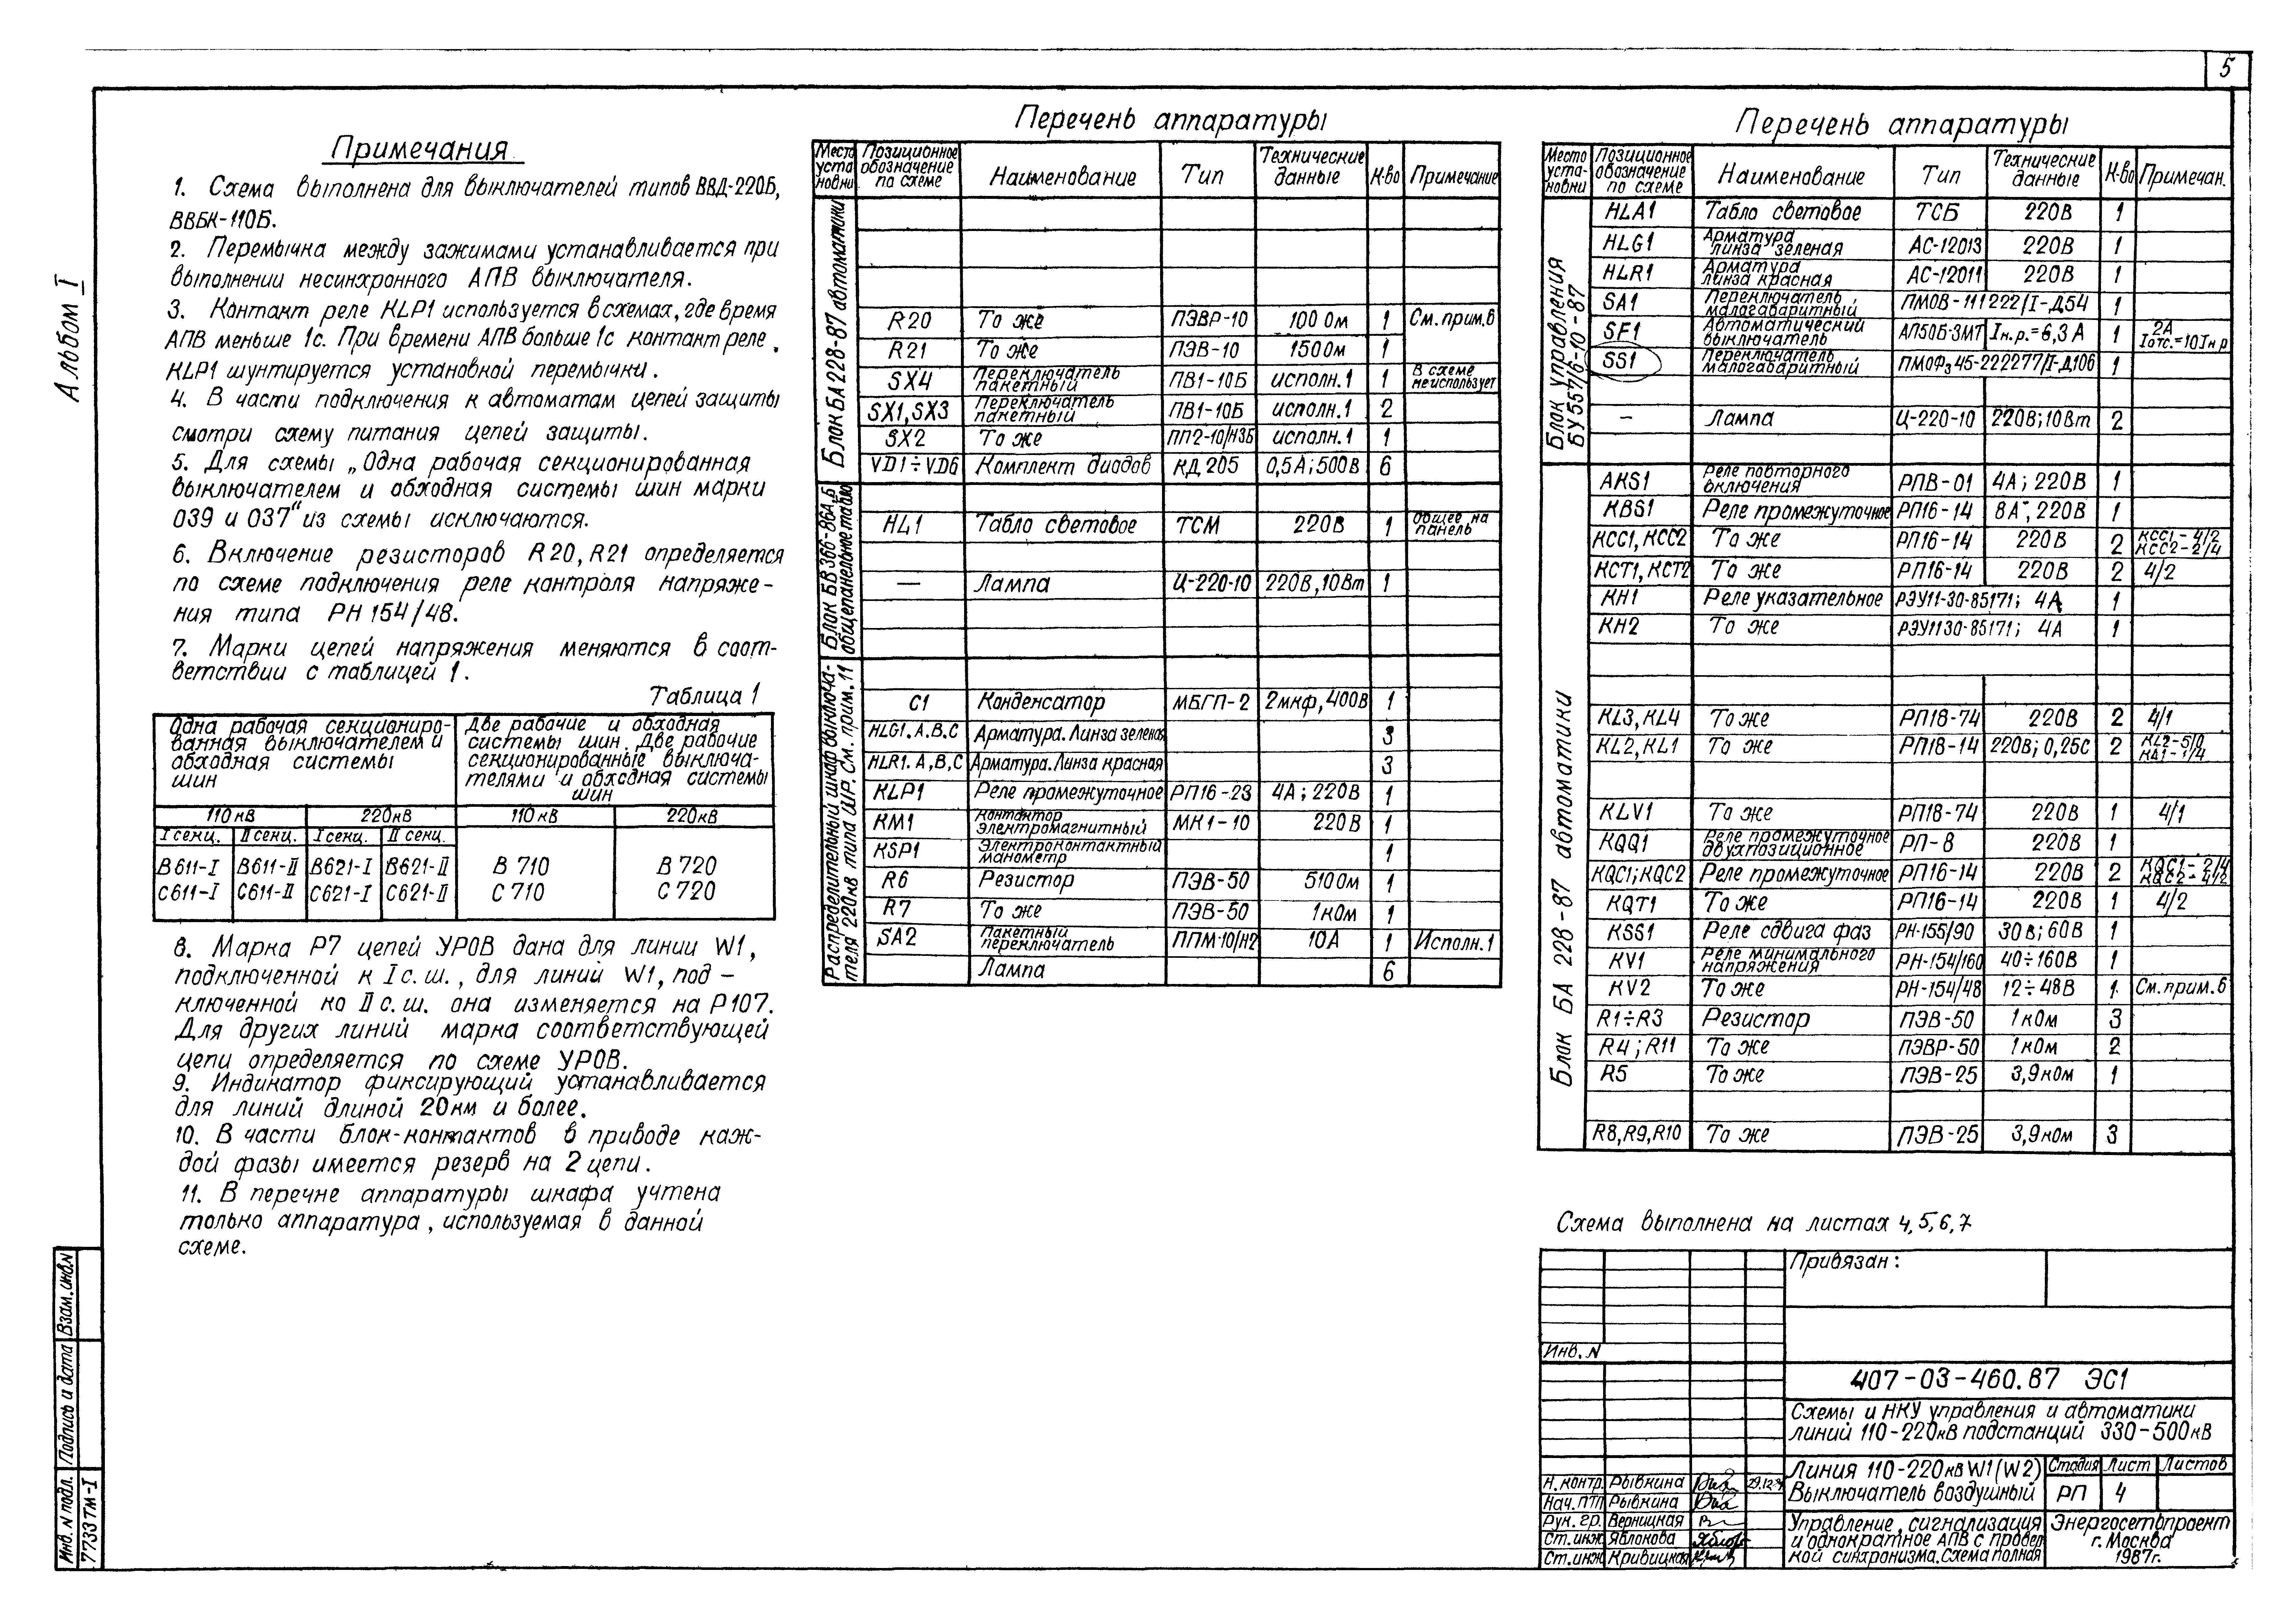 5
Альбом I
Примечания
1. Схема выполнена для выключателей типов ВВД-220Б,
ВВБК-110Б.
2. Перемычка между зажимами устанавливается при
выполнении несинхронного АПВ выключателя.
3. Контакт реле KLP1 используется в схемах, где время
АПВ меньше 1с. При времени АПВ больше 1с контакт реле
KLP1 шунтируется установкой перемычки.
4. В части подключения к автоматам цепей защиты
смотри схему питания цепей защиты.
5. Для схемы „Одна рабочая секционированная
выключателем и обходная системы шин марки
039 и 037“ из схемы исключаются.
6. Включение резисторов R20, R21 определяется
по схеме подключения реле контроля напряже-
ния типа РН 154/48.
7. Марки цепей напряжения меняются в соот-
ветствии с таблицей 1.
Таблица 1
Одна рабочая секциониро-
ванная выключателем и
обходная системы
шин
Две рабочие и обходная
системы шин. Две рабочие
секционированные выключа-
телями и обходная системы
шин
110 кВ 220кВ 110 кВ 220кВ
I секц. II секц. I секц. II секц.
В611-I В611-II В621-I В621-II В 710 В 720
С611-I С611-II С621-I С621-II С 710 С 720
8. Марка Р7 цепей УРОВ дана для линии W1,
подключенной к I с.ш., для линий W1, под-
ключенной ко II с.ш. она изменяется на Р107.
Для других линий марка соответствующей
цепи определяется по схеме УРОВ.
9. Индикатор фиксирующий устанавливается
для линий длиной 20км и более.
10. В части блок-контактов в приводе каж-
дой фазы имеется резерв на 2 цепи.
11. В перечне аппаратуры шкафа учтена
только аппаратура, используемая в данной
схеме.
Перечень аппаратуры
Место установки Позиционное обозначение по схеме Наименование Тип Технические данные К-во Примечание
Блок БА 228-87 автоматики
R20 То же ПЭВР-10 100 Ом 1 См. прим. 6
R21 То же ПЭВ-10 150Ом 1
SX4 Переключатель пакетный ПВ1-10Б исполн. 1 1 В схеме не использует
SX1, SX3 Переключатель пакетный ПВ1-10Б исполн. 1 2
SX2 То же ПП2-10/Н3Б исполн. 1 1
VD1÷VD6 Комплект диодов КД 205 0,5А; 500В 6
Блок БВ 366-86А,Б общепанельное табло
HL1 Табло световое ТСМ 220В 1 Общее на панель
— Лампа Ц-220-10 220В, 10Вт 1
Распределительный шкаф выключа-
теля 220кв типа ШР. См. прим. 11
C1 Конденсатор МБГП-2 2мкф, 400В 1
HLG1. A, B, C Арматура. Линза зеленая 3
HLR1. A, B, C Арматура. Линза красная 3
KLP1 Реле промежуточное РП16-23 4А; 220В 1
KM1 Контактор электромагнитный МК1-10 220В 1
KSP1 Электроконтактный манометр 1
R6 Резистор ПЭВ-50 510Ом 1
R7 То же ПЭВ-50 1кОм 1
SA2 Пакетный переключатель ППМ-10/Н2 10А 1 Исполн. 1
Лампа 6
Перечень аппаратуры
Место уста-новки Позиционное обозначение по схеме Наименование Тип Технические данные К-во Примечан.
Блок управления
БУ 557/6-10-87
HLA1 Табло световое ТСБ 220В 1
HLG1 Арматура линза зеленая АС-12013 220В 1
HLR1 Арматура линза красная АС-12011 220В 1
SA1 Переключатель малогабаритный ПМОВ-111222/I-Д54 1
SF1 Автоматический выключатель АП50Б-3МТ Iн.р.=6,3 А 1 2А Iотс.=10Iн.р
SS1 Переключатель малогабаритный ПМОФз45-222277/I-Д106 1
— Лампа Ц-220-10 220В; 10Вт 2
Блок БА 228-87 автоматики
AKS1 Реле повторного включения РПВ-01 4А; 220В 1
KBS1 Реле промежуточное РП16-14 8А; 220В 1
KCC1, KCC2 То же РП16-14 220В 2 KCC1-4/2 KCC2-2/4
KCT1, KCT2 То же РП16-14 220В 2 4/2
KH1 Реле указательное РЭУ11-30-85171; 4А 1
KH2 То же РЭУ1130-85171; 4А 1
KL3, KL4 То же РП18-74 220В 2 4/1
KL2, KL1 То же РП18-14 220В; 0,25с 2 KL2-5/0 KL1-1/4
KLV1 То же РП18-74 220В 1 4/1
KQQ1 Реле промежуточное двухпозиционное РП-8 220В 1
KQC1; KQC2 Реле промежуточное РП16-14 220В 2 KQC1-2/4 KQC2-4/2
KQT1 То же РП16-14 220В 1 4/2
KSS1 Реле сдвига фаз РН-155/90 30в; 60В 1
KV1 Реле минимального напряжения РН-154/160 40÷160В 1
KV2 То же РН-154/48 12÷48В 1 См. прим. 6
R1÷R3 Резистор ПЭВ-50 1кОм 3
R4; R11 То же ПЭВР-50 1кОм 2
R5 То же ПЭВ-25 3,9кОм 1
R8, R9, R10 То же ПЭВ-25 3,9кОм 3
Схема выполнена на листах 4, 5, 6, 7
Привязан:
Инв. N
407-03-460.87 ЭС1
Схемы и НКУ управления и автоматики
линий 110-220кВ подстанций 330-500кВ
Линия 110-220кВ W1 (W2)
Выключатель воздушный
Стадия Лист Листов
РП 4
Управление, сигнализация
и однократное АПВ с провер
кой синхронизма. Схема полная
Энергосетьпроект
г. Москва
1987г.
Н. контр. Рывкина
Нач. ПТП Рывкина
Рук. гр. Верницкая
Ст. инж Яблокова
Ст. инж Кривицкая
Инв. N подл. Подпись и дата Взам. инв. N
7733тм-I